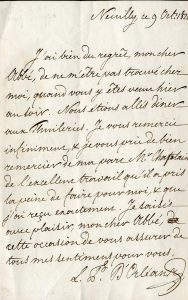 Neuilly ce 9 Oct. 18
J'ai bien du regret, mon cher
Abbé, de ne m'être pas trouvé chez
moi, quand vous y êtes venu hier
au soir. Nous étions allés dîner
aux Thuileries. Je vous remercie
infiniment, & je vous prie de bien
remercier de ma part Mr.
de l'excellent travail qu'il a pris
la peine de faire pour moi, & que
j'ai reçu exactement. Je saisis
avec plaisir, mon cher Abbé,
cette occasion de vous assurer de
tous mes sentiments pour vous.
L. Ph. D'Orléans